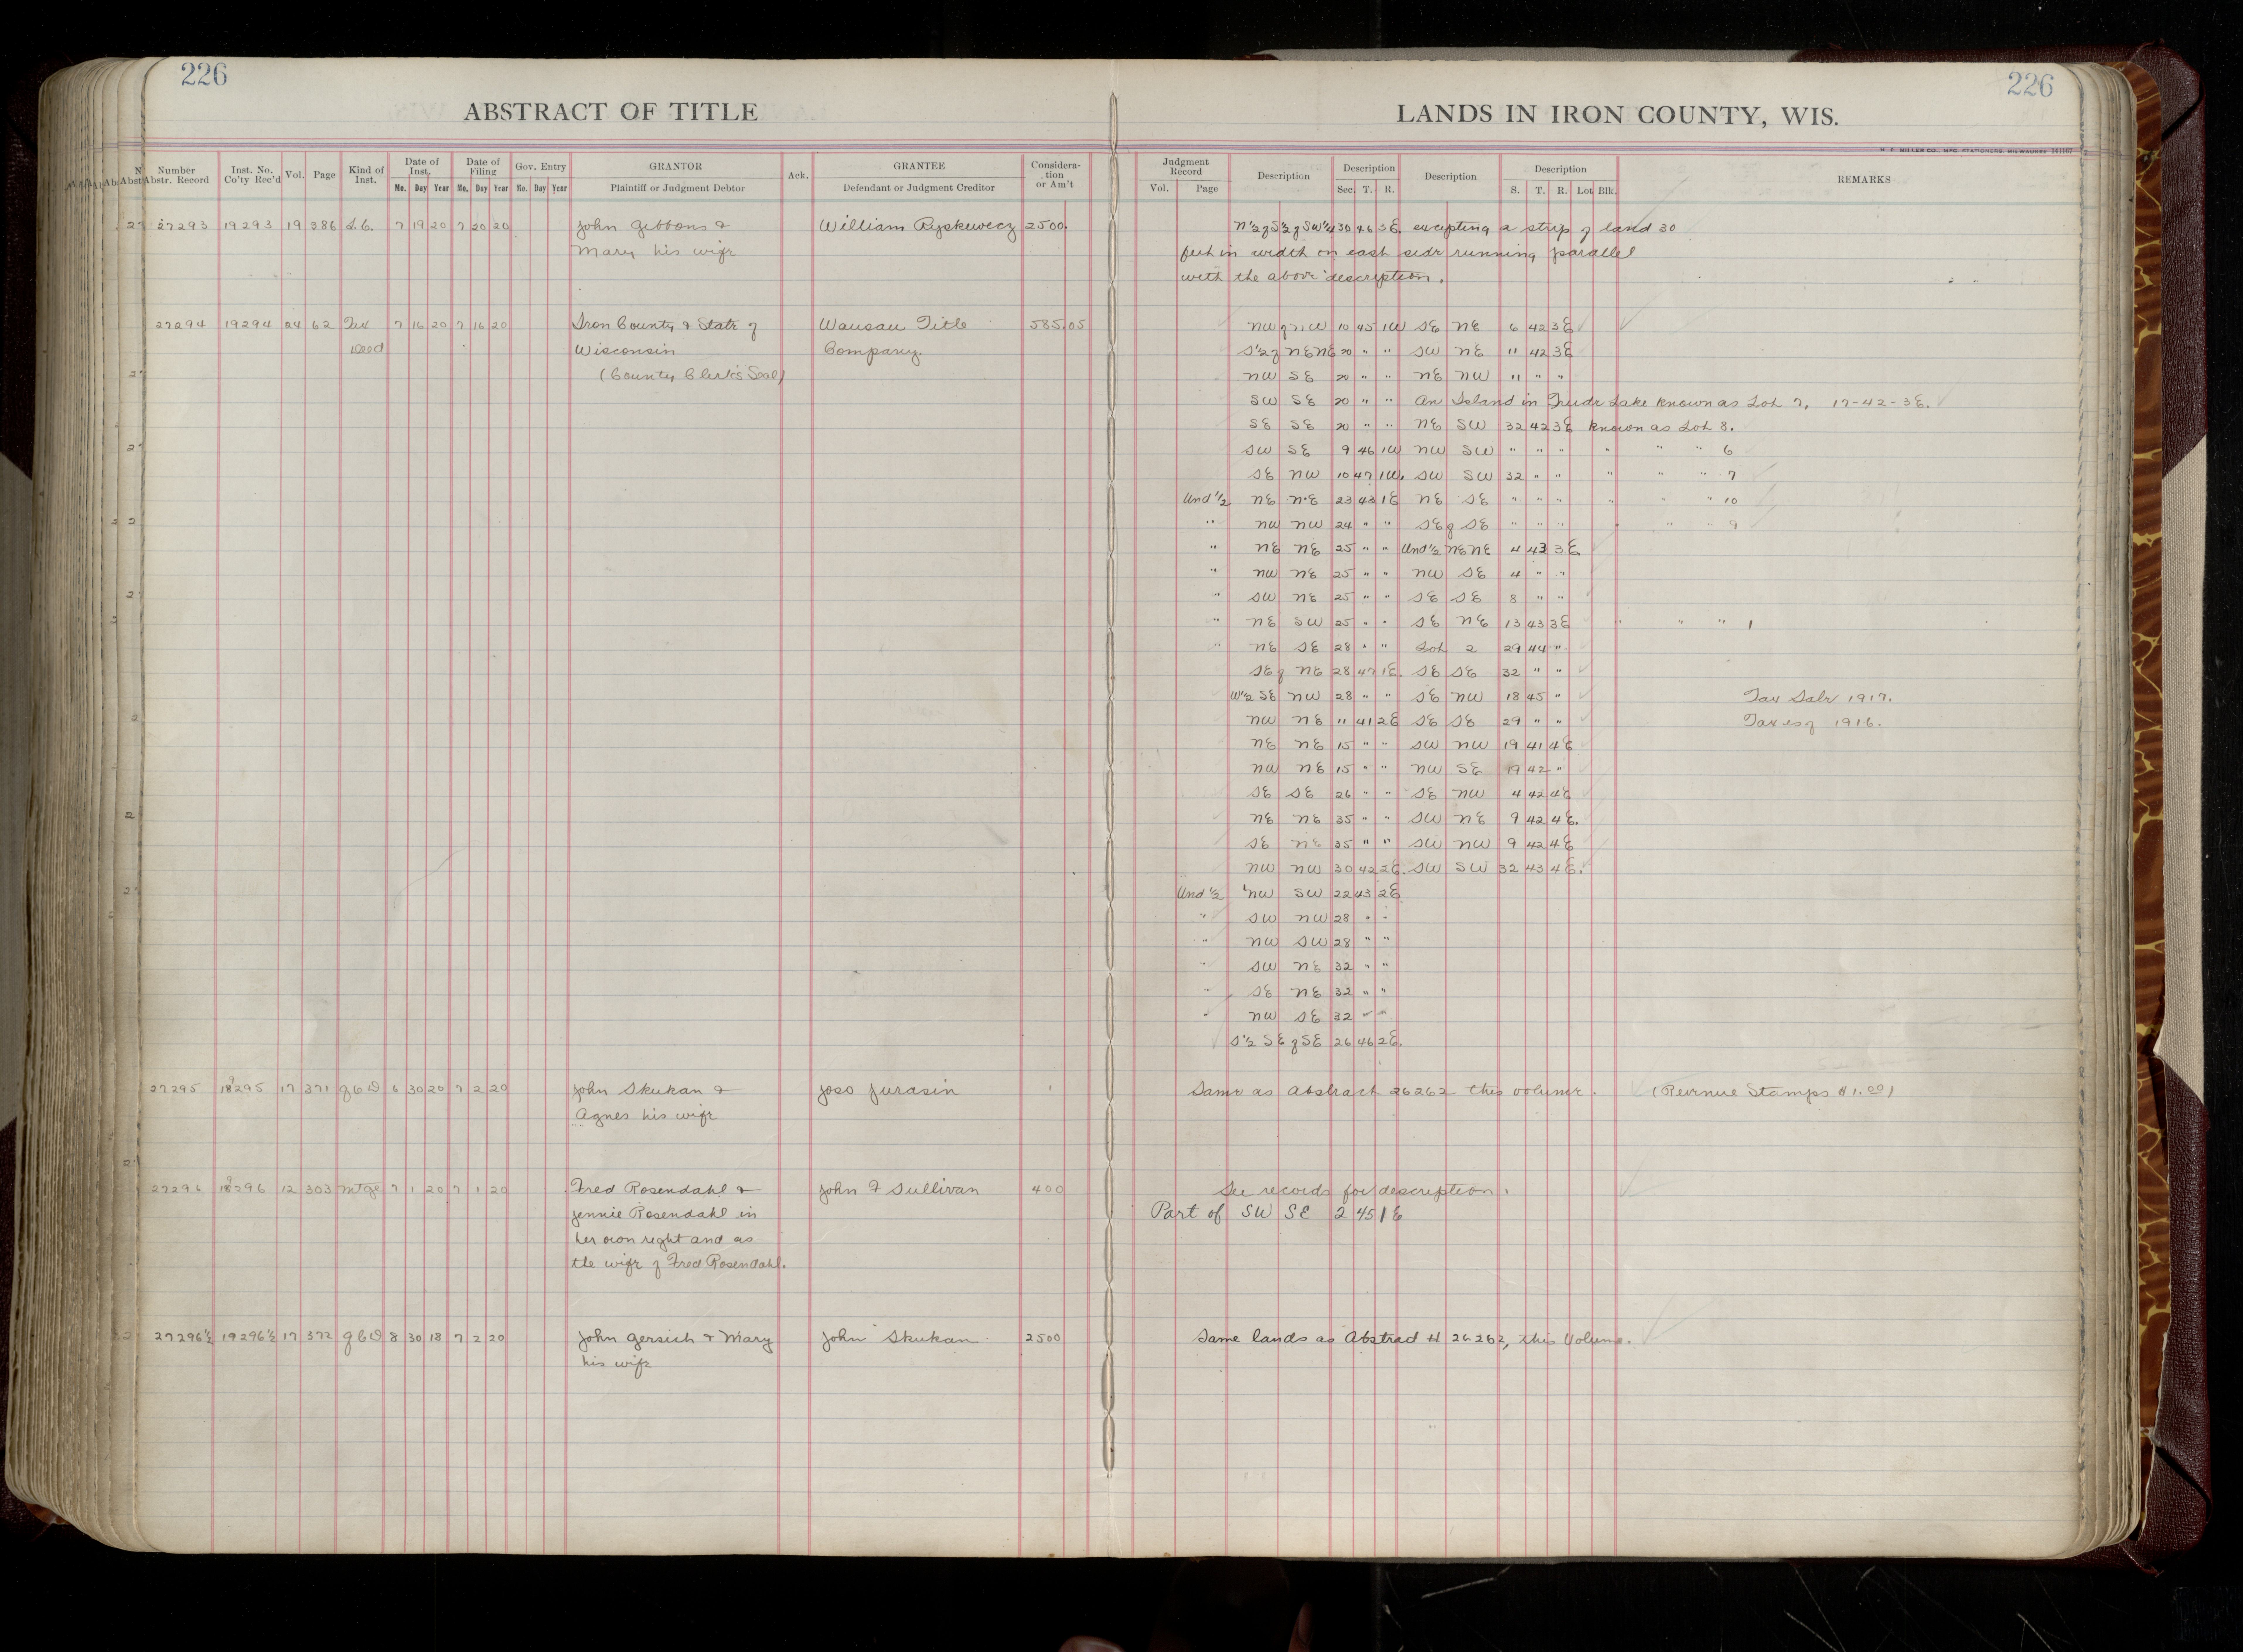 226
226
ABSTRACT OF TITLE
LANDS IN IRON COUNTY, WIS.
H. F. MILLER CO., MFG. STATIONERS, MILWAUKEE 141107
Number Abstr. Record | Inst. No. Co'ty Rec'd | Vol. | Page | Kind of Inst. | Date of Inst. Mo. Day Year | Date of Filing Mo. Day Year | Gov. Entry Mo. Day Year | GRANTOR Plaintiff or Judgment Debtor | Ack. | GRANTEE Defendant or Judgment Creditor | Consideration or Am't
Judgment Record Vol. Page | Description | Description Sec. T. R. | Description | Description S. T. R. Lot Blk. | REMARKS
27293 19293 19 386 L.C. 7 19 20 7 20 20 John Gibbons & William Ryskewecz 2500. N½ of S½ of SW¼ 30 46 3E. excepting a strip of land 30
Mary his wife feet in width on east side running parallel
with the above description.
27294 19294 24 62 Tax 7 16 20 7 16 20 Iron County & State of Wausau Title 585.05 NW of NW 10 45 1W SE NE 6 42 3E
Deed Wisconsin Company. S½ of NE NE 20 " " SW NE 11 42 3E
(County Clerk's Seal) NW SE 20 " " NE NW 11 " "
SW SE 20 " " An Island in Lake known as Lot 7, 17-42-3E.
SE SE 20 " " NE SW 32 42 3E known as Lot 8.
SW SE 9 46 1W NW SW " " " " " " 6
SE NW 10 47 1W. SW SW 32 " " " " " 7
Und ½ NE NE 23 43 1E NE SE " " " " " " 10
" NW NW 24 " " SE of SE " " " " " 9
" NE NE 25 " " Und ½ NE NE 4 43 3E.
" NW NE 25 " " NW SE 4 " "
" SW NE 25 " " SE SE 8 " "
" NE SW 25 " " SE NE 13 43 3E " " " 1
" NE SE 28 " " Lot 2 29 44 "
SE of NE 28 47 1E. SE SE 32 " "
W½ SE NW 28 " " SE NW 18 45 " Tax Sale 1917.
NW NE 11 41 2E SE SE 29 " " Taxes of 1916.
NE NE 15 " " SW NW 19 41 4E
NW NE 15 " " NW SE 19 42 "
SE SE 26 " " SE NW 4 42 4E
NE NE 35 " " SW NE 9 42 4E.
SE NE 35 " " SW NW 9 42 4E
NW NW 30 42 2E. SW SW 32 43 4E.
Und ½ NW SW 22 43 2E
" SW NW 28 " "
" NW SW 28 " "
" SW NE 32 " "
" SE NE 32 " "
" NW SE 32 " "
S½ SE of SE 26 46 2E.
27295 19295 17 371 QCD 6 30 20 7 2 20 John Skukan & Joso Jurasin 1 Same as Abstract 26262 this volume. (Revenue Stamps $1.00)
Agnes his wife
27296 19296 12 303 Mtge 7 1 20 7 1 20 Fred Rosendahl & John F Sullivan 400 See records for description.
Jennie Rosendahl in Part of SW SE 2 45 1E
her own right and as
the wife of Fred Rosendahl.
27296½ 19296½ 17 372 QCD 8 30 18 7 2 20 John Gersich & Mary John Skukan 2500 Same lands as Abstract # 26262, this Volume.
his wife